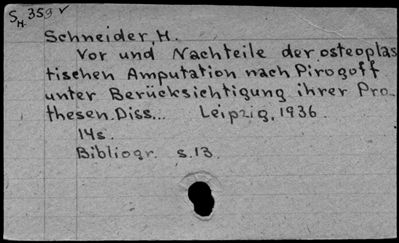 S H. 359 v
Schneider, H.
Vor und Nachteile der osteoplas
tischen Amputation nach Pirogoff
unter Berücksichtigung ihrer Pro-
thesen. Diss... Leipzig, 1936.
14s.
Bibliogr. s. 13.